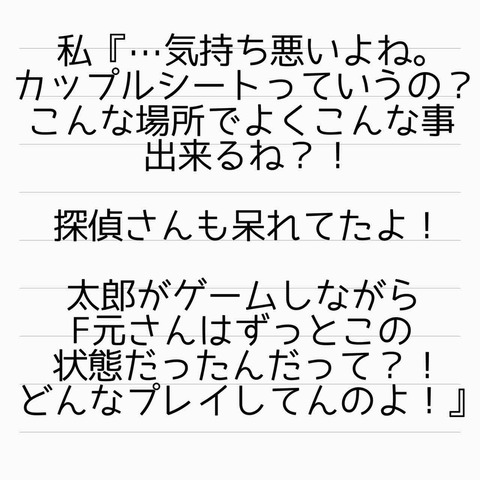 私『…気持ち悪いよね。
カップルシートっていうの？
こんな場所でよくこんな事
出来るね？！
探偵さんも呆れてたよ！
太郎がゲームしながら
F元さんはずっとこの
状態だったんだって？！
どんなプレイしてんのよ！』